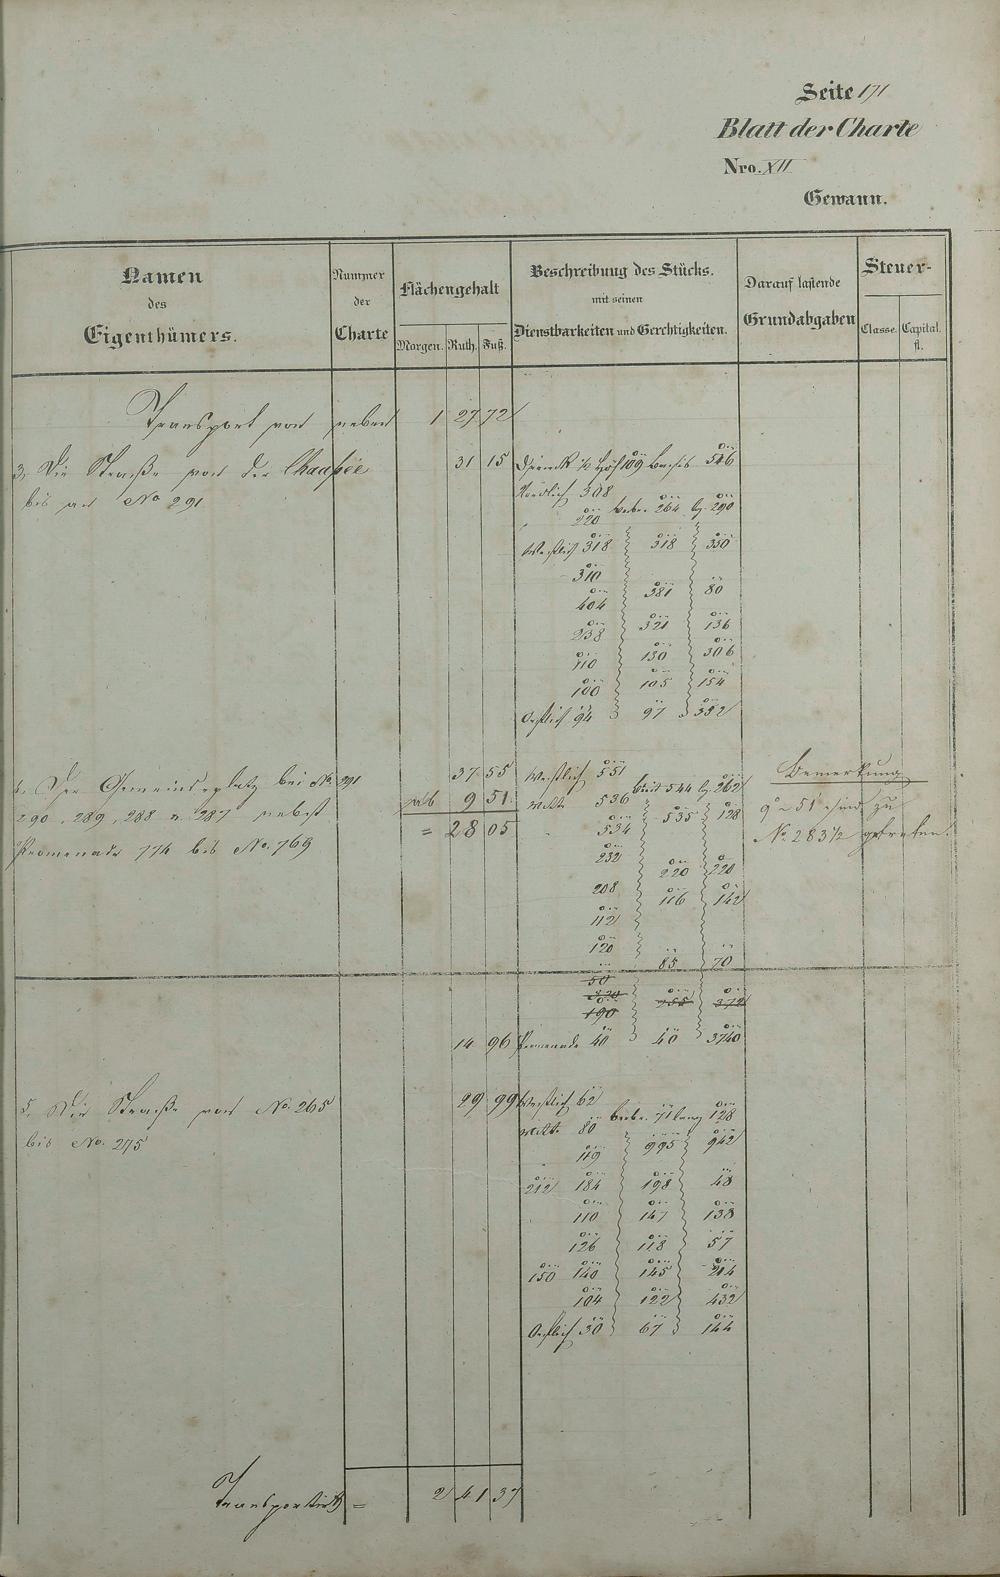 Seite 171
Blatt der Charte
Nro. XII
Gewann.
Namen des Eigenthümers.
Nummer der Charte
Flächengehalt
Morgen. Ruth. Fuß.
Beschreibung des Stücks.
mit seinen
Dienstbarkeiten und Gerechtigkeiten.
Darauf lastende
Grundabgaben
Steuer-
Classe. Capital. fl.
Transport von neben 1 27 72
3, Die Straße von der Chaussée 31 15 Dreieck ½ Höh 109 Basis 546
bis an No 291
Nördlich 308
220 breit 264 lg. 290
Westlich 318 318 330
310
404 381 80
238 321 136
110 130 306
100 105 154
Oestlich 94 97 332
4. Der Gemeindsplatz bei No. 291 37 55 Westlich 551
290, 289, 288 u. 287 nebst ab 9 51 Mitte 536 breit 544 lg. 262
= 28 05 534 535 128
Promenade 774 bis No. 769
232
208 220 220
112 116 142
120
85 70
50
190 255 372
14 96 Promenade 40 40 3740
Bemerkung
9° 51 sind zu
No. 283½ getreten.
5. Die Straße von No. 265 29 99 Westlich 62
bis No. 275
Mitte 80 breit 71 lang 128
119 995 942
212 184 198 48
110 147 138
126 118 57
150 140 145 214
104 122 432
Oestlich 30 67 144
Transportirt = 2 41 37